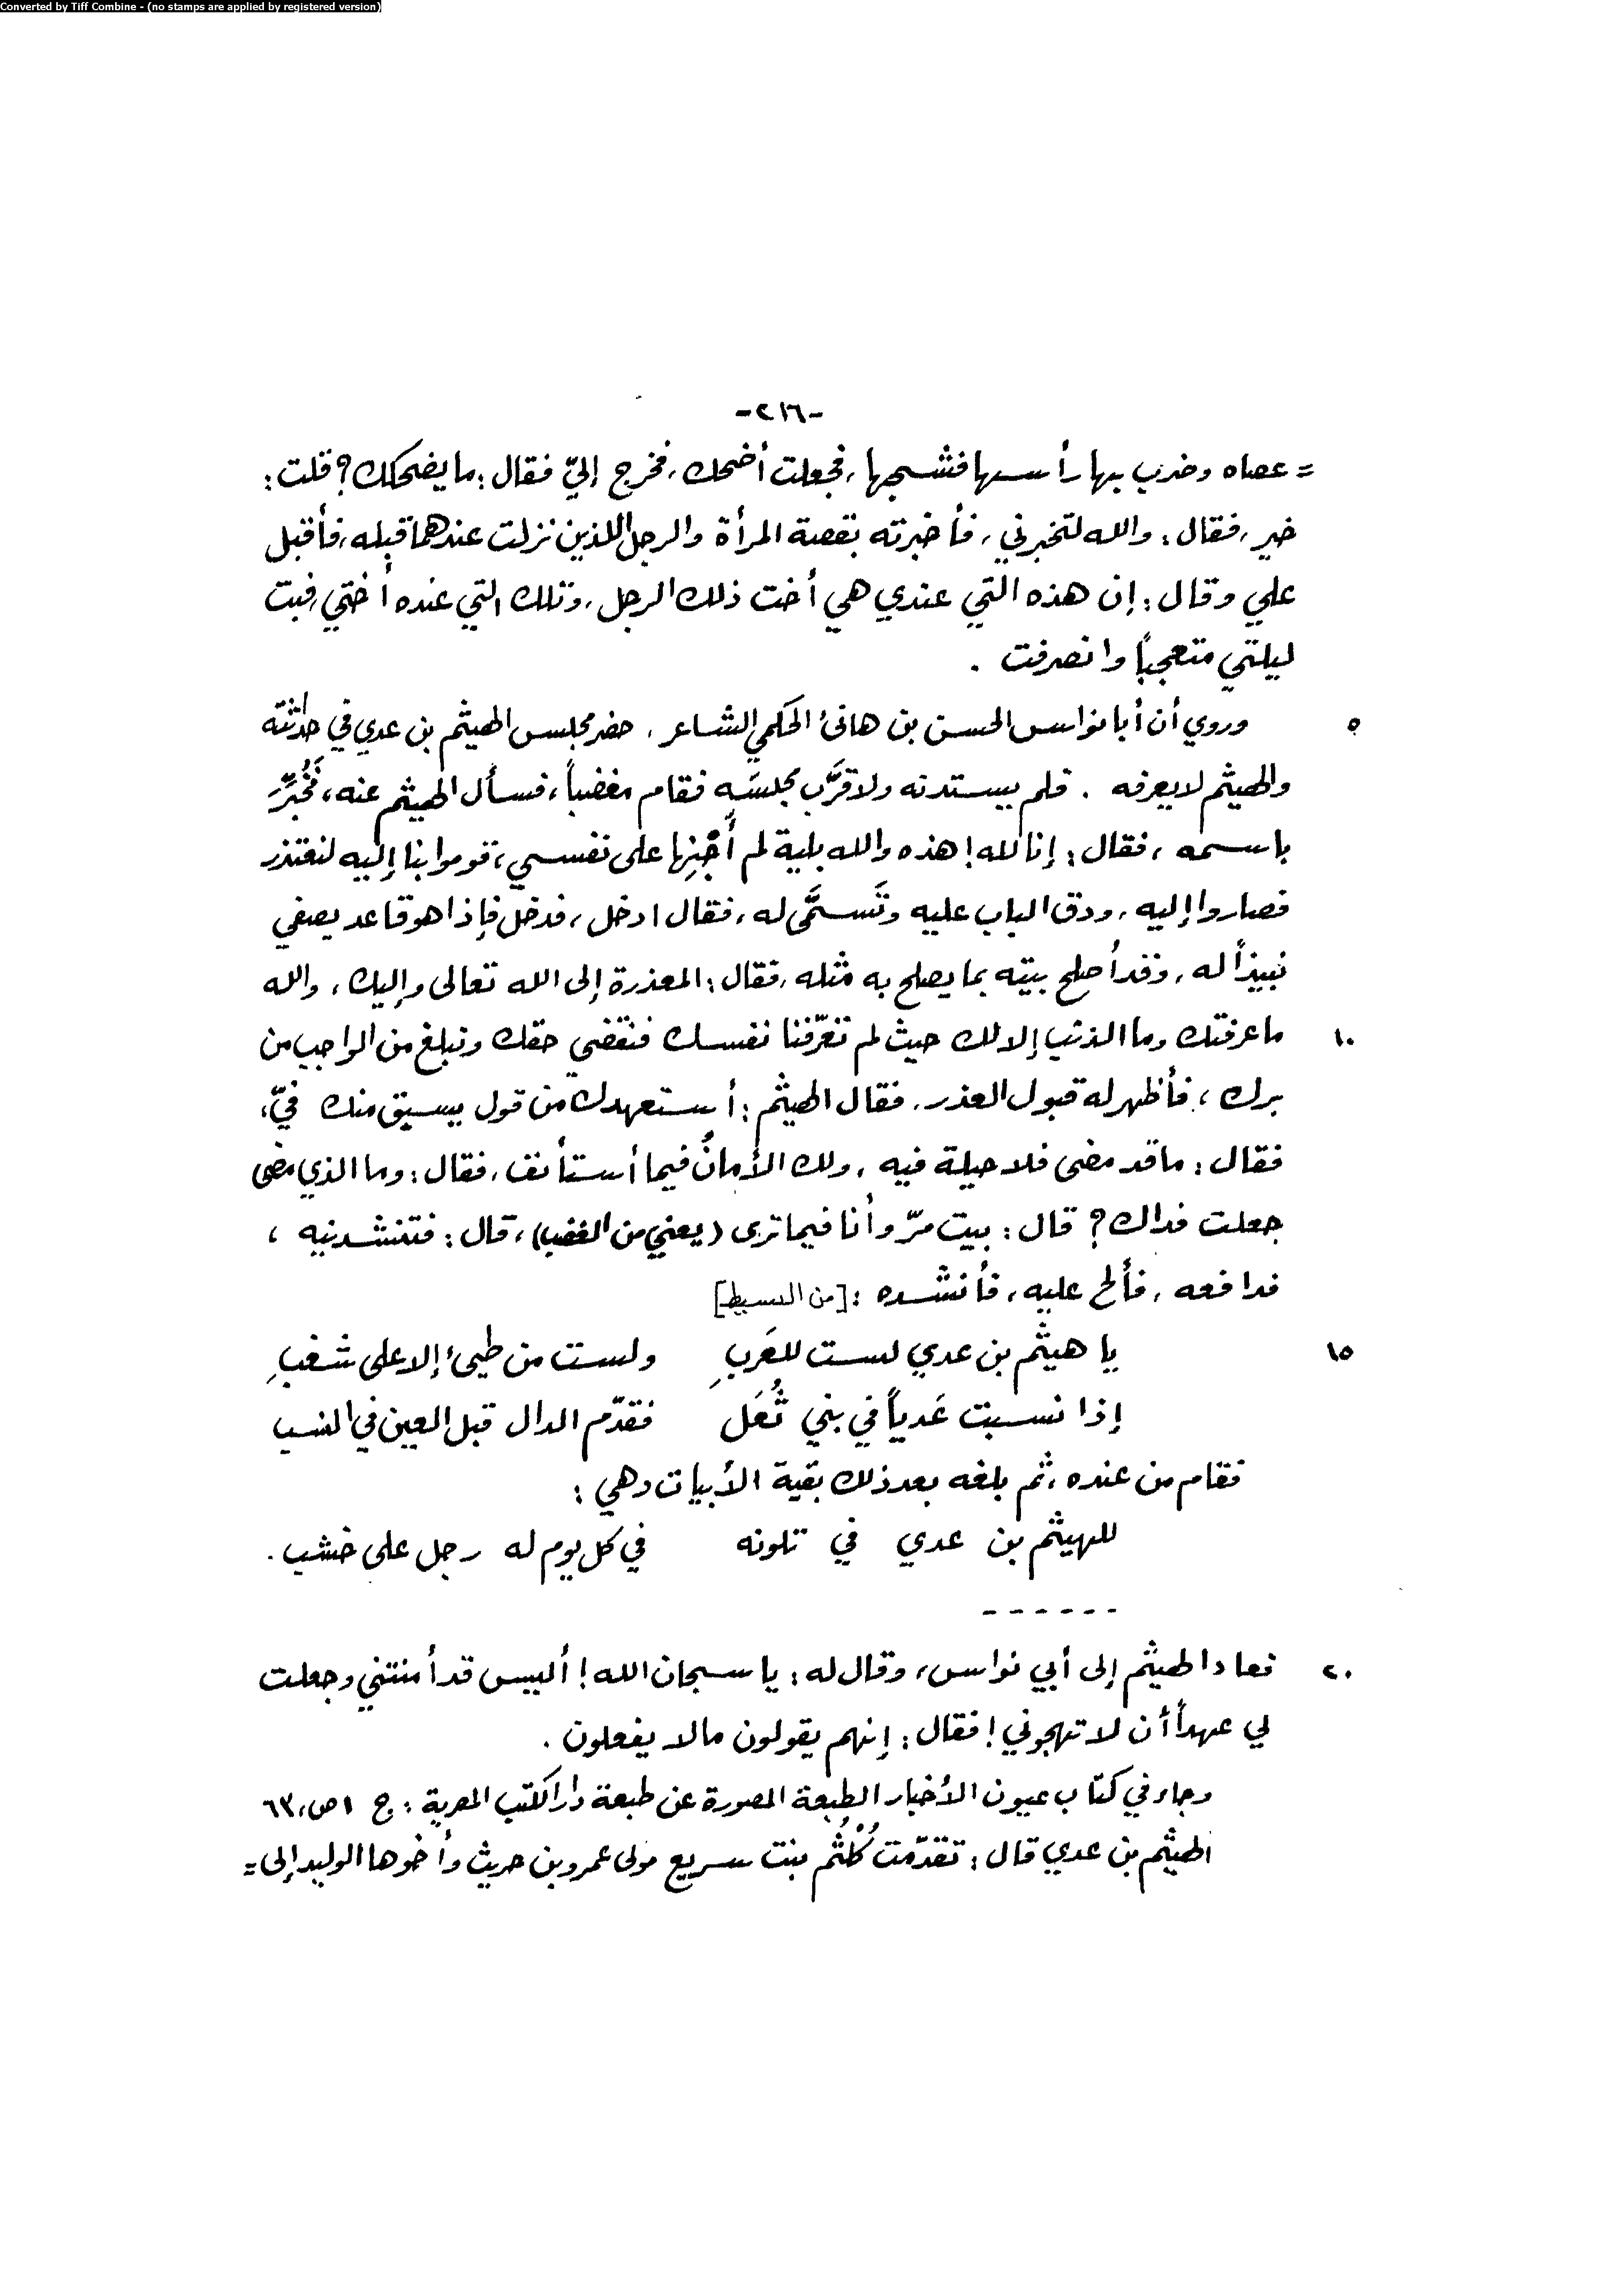 Converted by Tiff Combine - (no stamps are applied by registered version)
-٢١٦-
= عصاه وضرب بها رأسها فشجها، فجعلت أضحك، فخرج إليّ فقال: ما يضحكك؟ قلت:
خير، فقال: والله لتخبرني، فأخبرته بقصة المرأة والرجل اللذين نزلت عندهما قبله، فأقبل
علي وقال: إن هذه التي عندي هي أخت ذلك الرجل، وتلك التي عنده أختي، فبت
ليلتي متعجباً وانصرفت .
٥ وروي أن أبا نواس الحسن بن هانئ الحكمي الشاعر، حضر مجلس الهيثم بن عدي في حداثته
والهيثم لا يعرفه . فلم يستدنه ولا قرَّب مجلسَه فقام مغضباً، فسأل الهيثم عنه، فَخُبِّرَ
باسمه، فقال: إنا لله! هذه والله بلية لم أَجْنِها على نفسي، قوموا بنا إليه لنعتذر
فصاروا إليه، ودق الباب عليه وتَسمَّى له، فقال ادخل، فدخل فإذا هو قاعد يصفي
نبيذاً له، وقد أصلح بيته بما يصلح به مثله، فقال: المعذرة إلى الله تعالى وإليك، والله
١٠ ما عرفتك وما الذنب إلا لك حيث لم تعرّفنا نفسك فنقضي حقك ونبلغ من الواجب من
برك، فأظهر له قبول العذر، فقال الهيثم: أستعهدك من قول يسبق منك فيّ،
فقال: ما قد مضى فلا حيلة فيه، ولك الأمانُ فيما أستأنف، فقال: وما الذي مضى
جعلت فداك؟ قال: بيت مرّ وأنا فيما ترى (يعني من الغضب)، قال: فتنشدنيه ،
فدافعه، فألح عليه، فأنشده : [من البسيط]
١٥ يا هيثم بن عدي لست للعَربِ ولست من طيئ إلا على شغبِ
إذا نسبت عَدياً في بني ثُعَل فقدّم الدال قبل العين في النسب
فقام من عنده، ثم بلغه بعد ذلك بقية الأبيات وهي :
للهيثم بن عدي في تلونه في كل يوم له رجل على خشب .
------
٢٠ فعاد الهيثم إلى أبي نواس، وقال له: يا سبحان الله! أليس قد أمنتني وجعلت
لي عهداً أن لا تهجوني! فقال: إنهم يقولون ما لا يفعلون .
وجاء في كتاب عيون الأخبار الطبعة المصورة عن طبعة دار الكتب المصرية: ج ١ ص، ٦٣
الهيثم بن عدي قال: تقدّمت كُلْثُم بنت سريع مولى عمرو بن حريث وأخوها الوليد إلى =